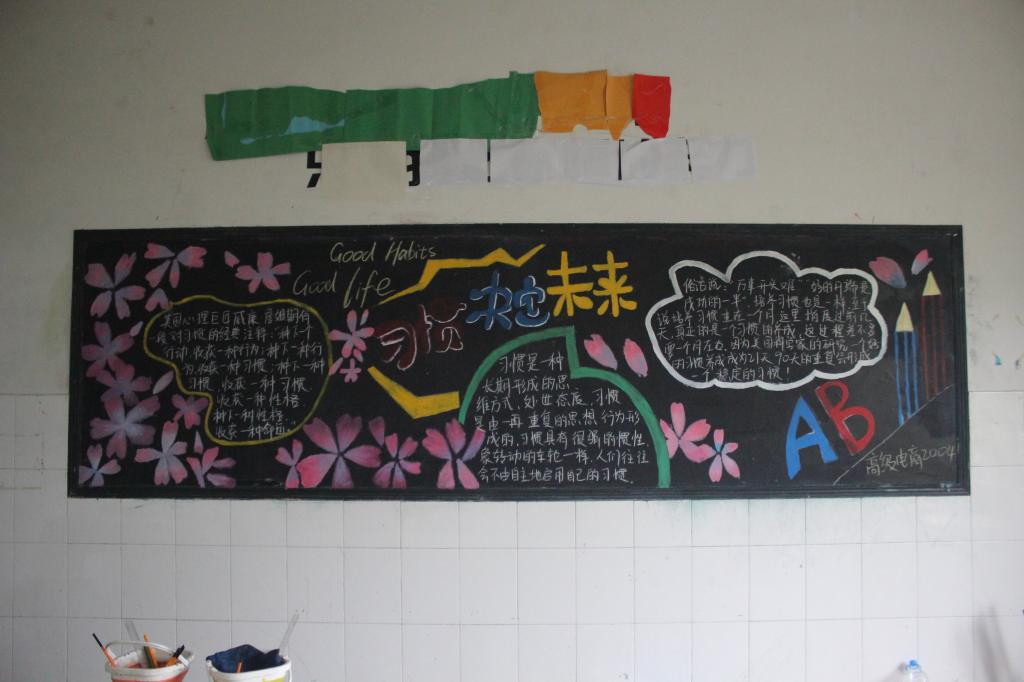 Good Habits
Good life
习惯决定未来
美国心理巨匠威廉·詹姆斯有
段对习惯的经典注释:“种下一个
行动,收获一种行为;种下一种行
为,收获一种习惯;种下一种
习惯,收获一种习惯
收获一种性格
种下一种性格,
收获一种命运。”
习惯是一种
长期形成的思
维方式、处世态度,习惯
是由一再重复的思想行为形
成的,习惯具有很强的惯性,
象转动的车轮一样。人们往往
会不由自主地启用自己的习惯,
俗话说:“万事开头难”“好的开始是
成功的一半”培养习惯也是一样
说培养习惯重在一个月这里
天,真正的是一个习惯的养成,这过程差不多
要一个月左右,因为美国有专家的研究一个
的习惯养成成为21天,90天的重复会形成
一个稳定的习惯!
AB
高级电商2004